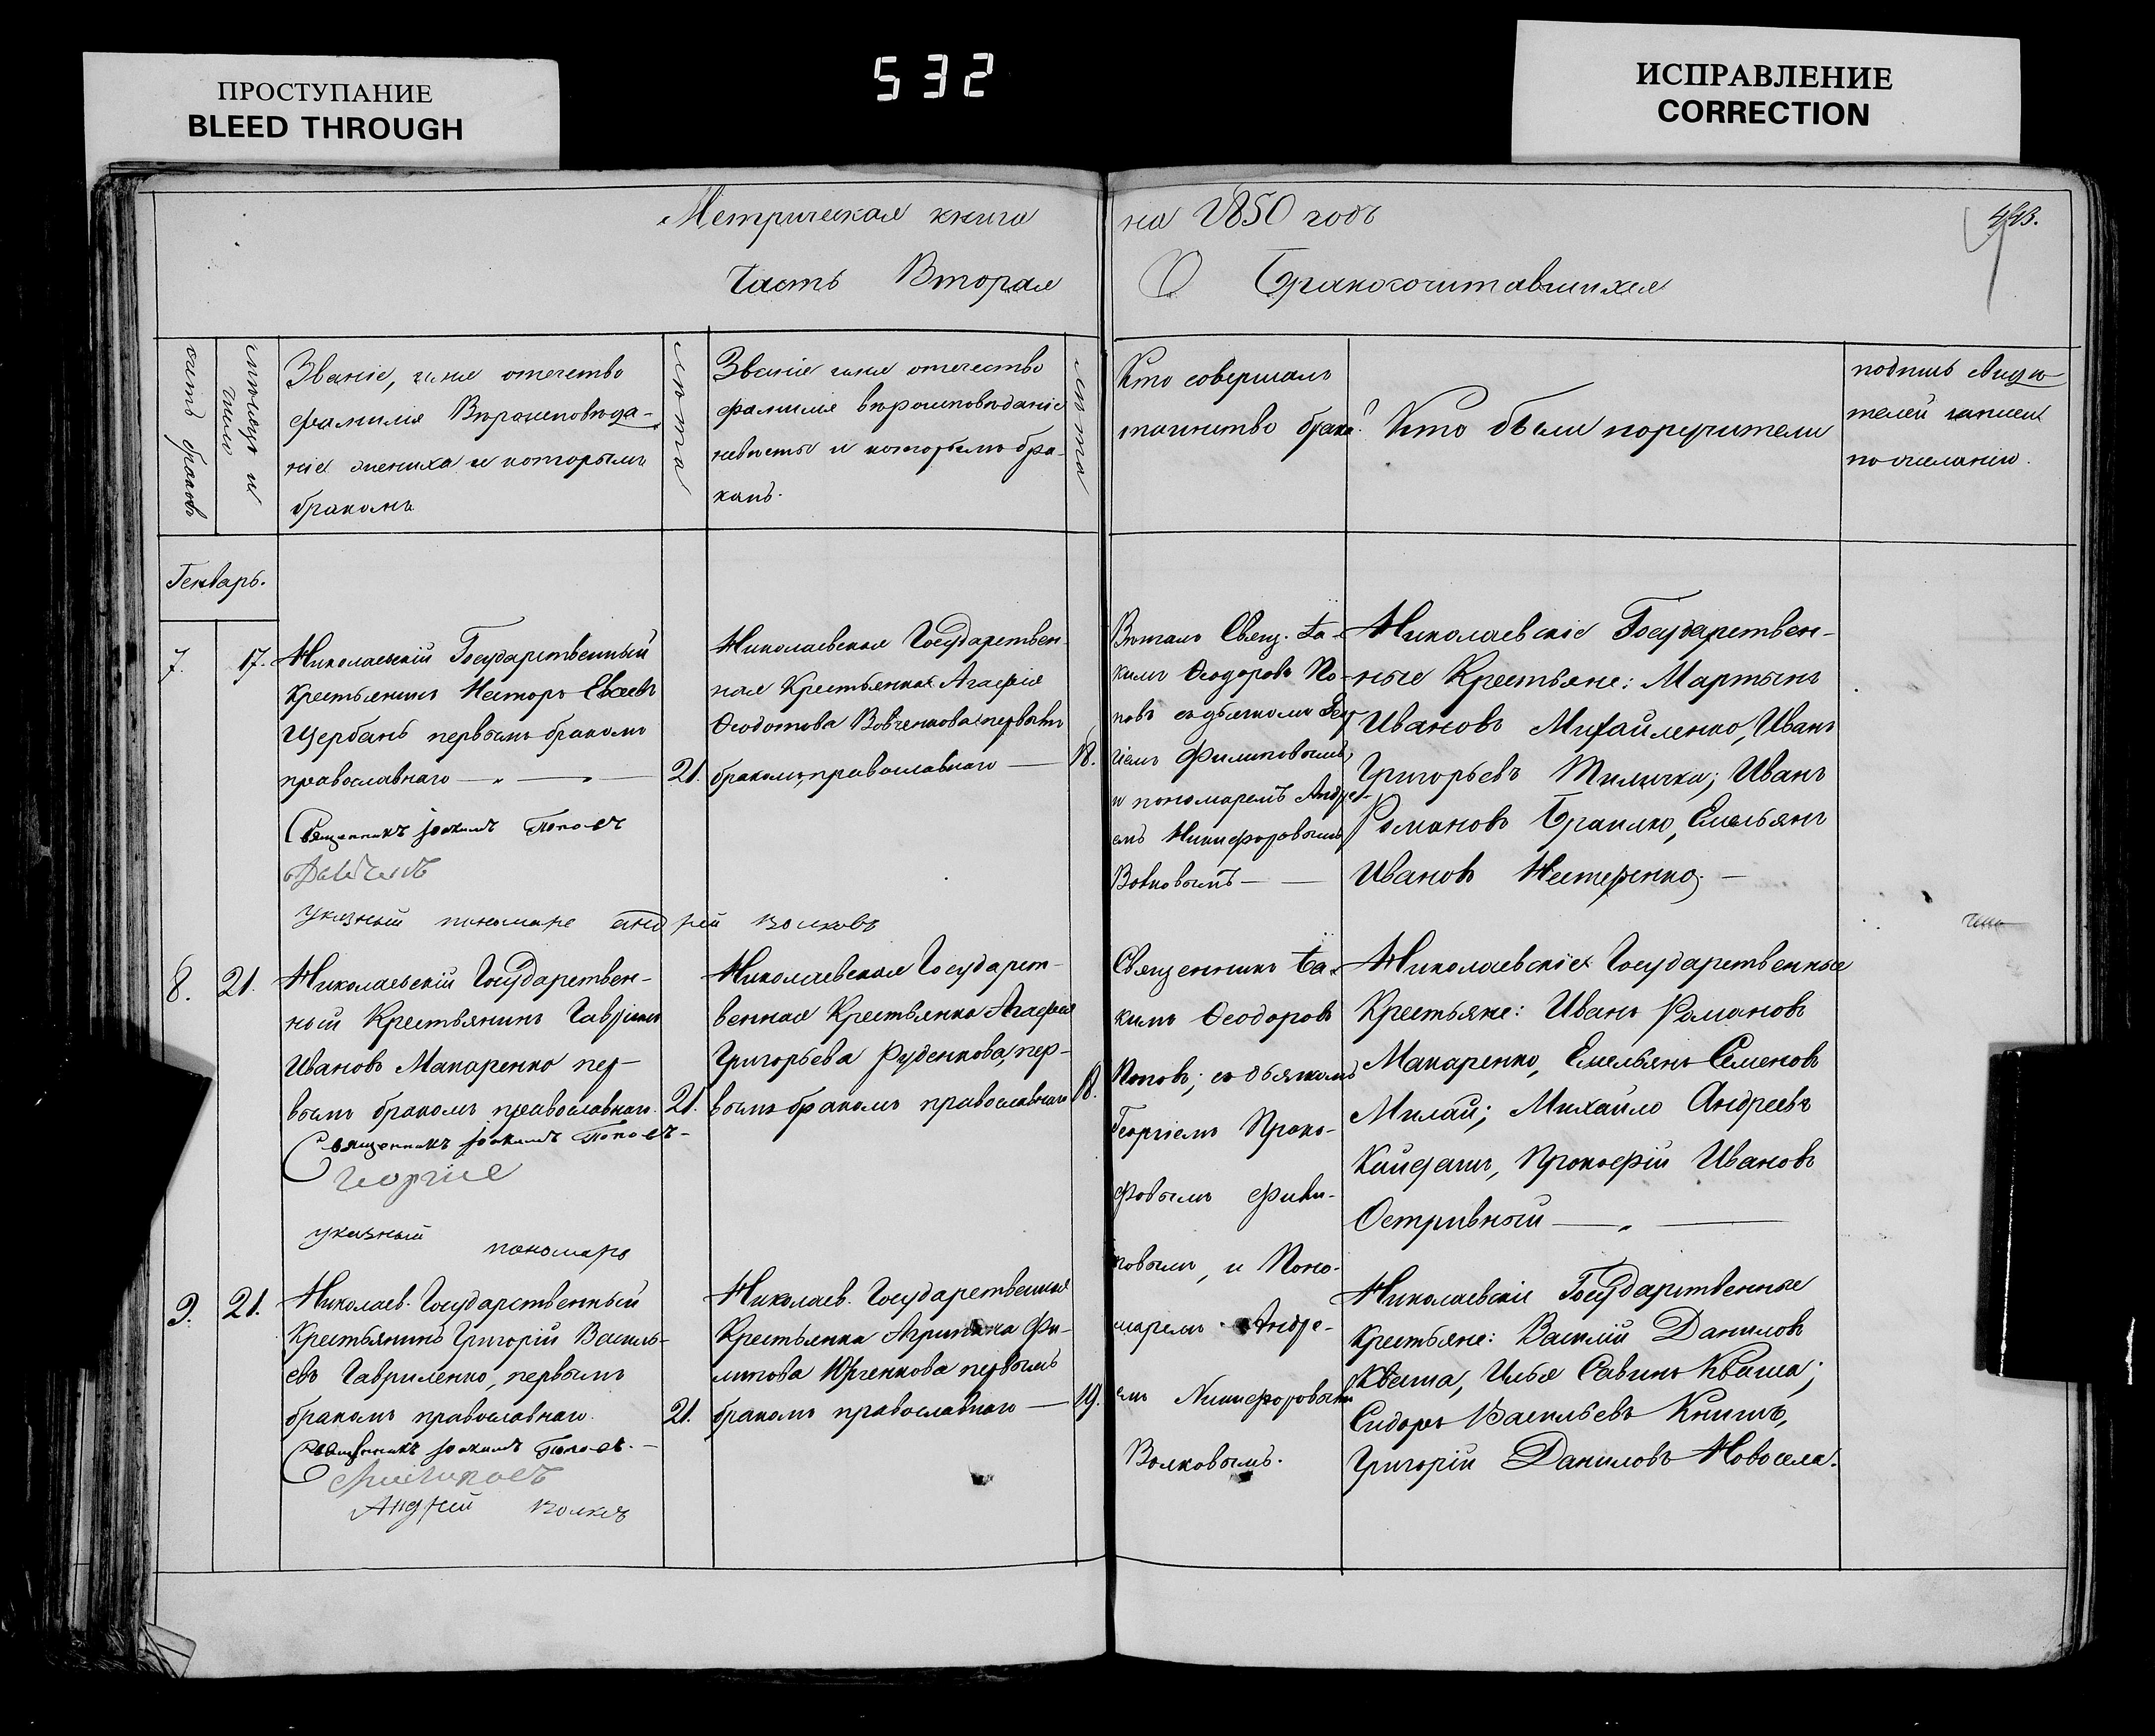 ПРОСТУПАНИЕ
BLEED THROUGH
532
ИСПРАВЛЕНИЕ
CORRECTION
Метрическая книга
на 1850 годъ
443.
Часть Вторая
О Бракосочитавшихся
счетъ браковъ
мѣсяцъ и
число
Званіе, имя отечество
фамилія Вѣроисповѣда-
ніе жениха и которымъ
бракомъ
лѣта
Званіе имя отечество
фамилія вѣроисповѣданіе
невѣсты и которымъ бра-
комъ.
лѣта
Кто совершалъ
таинство брака?
Кто были поручители
подпись свидѣ-
телей записи
по желанію.
Генварь.
7.
17.
Николаевскій Государственный
Крестьянинъ Несторъ Евсеевъ
Щербань первымъ бракомъ
православнаго
21.
Священникъ Іоакимъ Поповъ
указный пономаре андрей волковъ
Николаевская Государствен-
ная Крестьянка Агафія
Ѳеодотова Вовченкова первымъ
бракомъ, православнаго
18.
Вѣнчалъ Свящ. Іа-
кимъ Ѳеодоровъ По-
повъ съ дьячкомъ Геор-
гіемъ Филиповымъ,
и пономаремъ Андре-
емъ Никифоровымъ
Волковымъ
Николаевскіе Государствен-
ные Крестьяне: Мартынъ
Ивановъ Михайленко, Иванъ
Григорьевъ Тиличка; Иванъ
Романовъ Браилко, Емельянъ
Ивановъ Нестеренко.
8.
21.
Николаевскій Государствен-
ный Крестьянинъ Гавріилъ
Ивановъ Макаренко пер-
вымъ бракомъ православнаго.
21.
Священникъ Іоакимъ Поповъ
Георгіе
указный
пономаръ
Николаевская Государст-
венная Крестьянка Агафія
Григорьева Руденкова, пер-
вымъ бракомъ православнаго
18.
Священникъ Іа-
кимъ Ѳеодоровъ
Поповъ; съ дьячкомъ
Георгіемъ Проко-
фовымъ Фили-
повымъ, и Поно-
маремъ Андре-
емъ Никифоровымъ
Волковымъ.
Николаевскіе Государственные
Крестьяне: Иванъ Романовъ
Макаренко, Емельянъ Семеновъ
Милай; Михайло Андреевъ
Кайдашъ, Прокофій Ивановъ
Остривный
9.
21.
Николаев. Государственный
Крестьянинъ Григорій Василь-
евъ Гавриленко, первымъ
бракомъ православнаго.
21.
Священникъ Іоакимъ Поповъ.
Андрей волковъ
Николаев. Государственная
Крестьянка Агрипина Фи-
липова Юрченкова первымъ
бракомъ православнаго
19.
Николаевскіе Государственные
Крестьяне: Василій Даниловъ
Кваша, Илья Савинъ Кваша;
Сидоръ Васильевъ Книшъ,
Григорій Даниловъ Новосела.